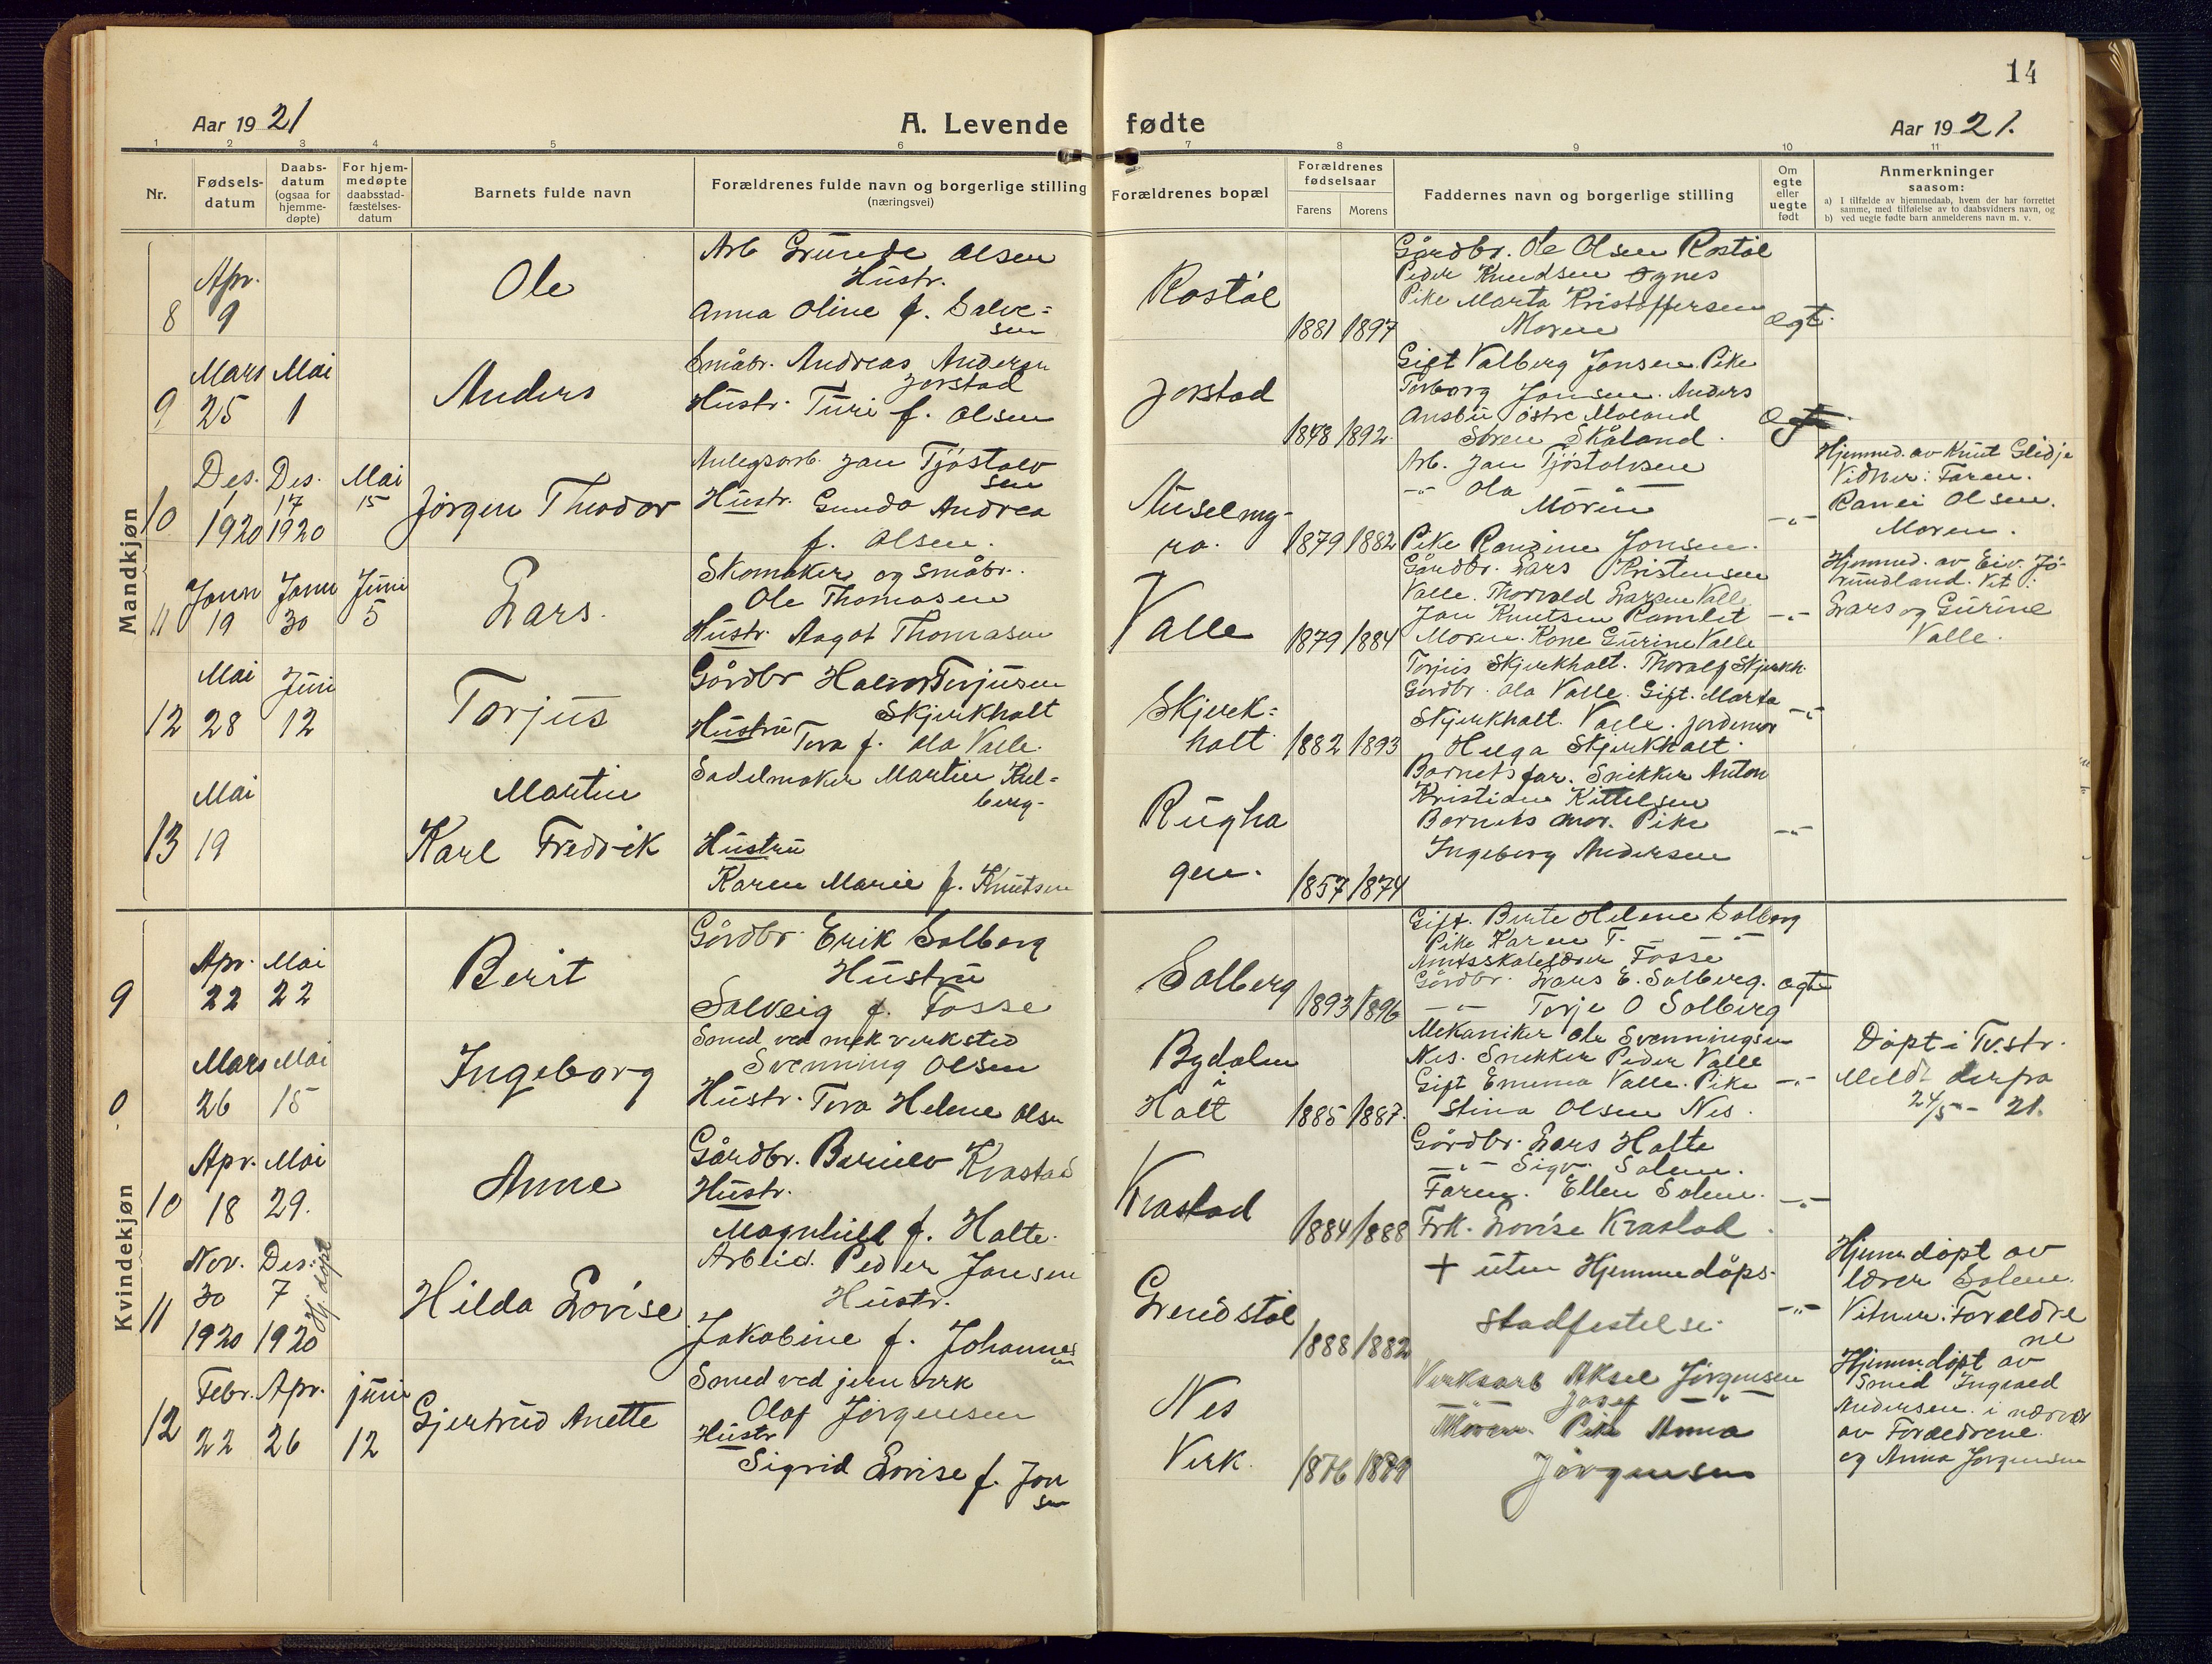 14
Aar 1921
A. Levende fødte
Aar 1921.
1 2 3 4 5 6 7 8 9 10 11
Nr.
Fødsels-
datum
Daabs-
datum
(ogsaa for
hjemme-
døpte)
For hjem-
medøpte
daabsstad-
fæstelses-
datum
Barnets fulde navn
Forældrenes fulde navn og borgerlige stilling
(næringsvei)
Forældrenes bopæl
Forældrenes
fødselsaar
Farens
Morens
Faddernes navn og borgerlige stilling
Om
egte
eller
uegte
født
Anmerkninger
saasom:
a) I tilfælde av hjemmedaab, hvem der har forrettet
samme, med tilføielse av to daabsvidners navn, og
b) ved uegte fødte barn anmelderens navn m. v.
Mandkjøn
8
Apr.
9
Ole
Arb Grunde Olsen
Hustr.
Anna Oline f. Salve=
sen
Rostøl
1881 1897
Gårdbr. Ole Olsen Rostøl
Peder Knudsen Ognes
Pike Marta Kristoffersen
Moren
egt.
9
Mars Mai
25 1
Anders
Småbr. Andreas Andersen
Jorstad
Hustr. Turi f. Olsen
Jorstad
1878 1892.
Gift Valberg Jonsen. Pike
Torborg Jonsen. Anders
Ansbu østre Moland
Søren Skåland.
egt.
10
Des. Des. Mai
1 17 15
1920 1920
Jørgen Theodor
Anlegsarb. Jan Tjøstolv
sen
Hustr. Gunda Andrea
f. Olsen.
Auselmy-
ra.
1879 1882
Arb. Jan Tjøstolvsen
-"- Ola
Moren
Pike Ronzine Jonsen.
-"-
Hjemmed. av Knut Glidje
Vidner: Faren.
Ranei Olsen.
Moren.
11
Jann Jann Juni
19 30 5
Lars.
Skomaker og småbr.
Ole Thomasen
Hustr. Aagot Thomasen
Valle
1879 1884
Gårdbr. Lars Kristensen
Valle. Thorvald Larsen Valle
Jan Knutsen Ramlet
Moren. Kone Gurine Valle
-"-
Hjemmed. av Eiv. Jø-
rundland. Vit.:
Lars og Gurine
Valle.
12
Mai Juni
28 12
Torjus
Gårdbr Halvor Torjusen
Skjerkholt
Hustru Tora f. Ola Valle.
Skjerk=
holt
1882 1893
Torjus Skjerkholt. Thoralf Skjerkh.
Gårdbr. Ola Valle. Gift. Marta
Skjerkholt. Valle. jordemor
Helga Skjerkholt.
-"-
13
Mai
19
Martin
Karl Fredrik
Sadelmaker Martin Kul=
berg-
Hustru
Karen Marie f. Knutsen
Rugha
gen.
1857 1874
Barnets far. Snikker Anton
Kristian Kittelsen
Barnets mor. Pike
Ingeborg Andersen
-"-
Kvindekjøn
9
Apr. Mai
22 22
Berit
Gårdbr. Erik Solberg
Hustru
Solveig f. Fosse
Solberg
1893 1896
Gift. Birte Helene Solberg
Pike Karen T. - - "-
Amtsskolelærer Fosse
Gårdbr. Lars E. Solberg.
-"- Torje O Solberg
egte
0
Mars Mai
26 15
Ingeborg
Smed ved mek verksted
Svenning Olsen
Hustr. Tora Helene Olsen
Bydalen
i
Holt
1885 1887.
Mekaniker Ole Svenningsen
Nes. Snekker Peder Valle
Gift Emma Valle. Pike
Stina Olsen Nes.
-"-
Døpt i Tv.str.
Meldt derfra
24/5 - 21.
10
Apr. Mai
18 29.
Anne
Gårdbr. Barulv Kvastad
Hustr.
Magnhild f. Holte.
Kvastad
1884 1888
Gårdbr. Lars Holte
-"- Sigv. Solem.
Faren. Ellen Solem.
Frk. Lovise Kvastad.
-"-
11
Nov. Des.
30 7
1920 1920
Hj. døpt
Hilda Lovise
Arbeid. Peder Jansen
Hustr.
Jakobine f. Johannes
sen
Grendstøl
1888 1882
+ uten Hjemmedøps-
stadfestelse.
-"-
Hjemmdøpt av
lærer Solem.
Vitner: Foreldre
ne
12
Febr. Apr. juni
22 26 12
Gjertrud Anette
Smed ved jernverk
Olaf Jørgensen
Hustr
Sigrid Lovise f. Jon
sen
Nes
Verk.
1876
Verksarb Aksel Jørgensen
-"- Josef -"-
Moren. Pike Anna
Jørgensen
Hjemmdøpt av
Smed Ingvald
Andersen i nærvær
av Forældrene
og Anna Jørgensen